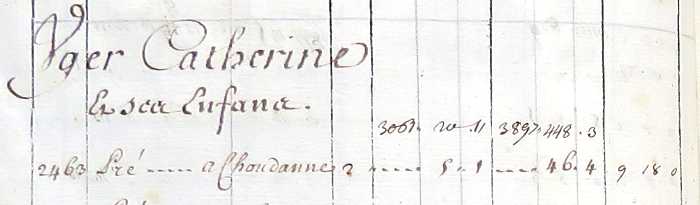 Yger Catherine
Et sea Enfana.
3061. 20 .11 3897. 448 . 3
2463 Pré ---- a Choudanne 2 ---- 5 . 1 ---- 46. 4 9 18 0